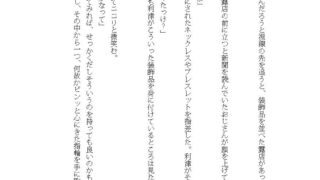 んだろうと視線の先を追うと、装飾品を並べた露店があっ
露店の前に立つと新聞を読んでいたおじさんが顔を上げて
されたネックレスやブレスレットを指差した。利津がそ
たっけ?」
も利津がこういった装飾品を身に付けているところは見た
てニコリと微笑む。
なって」
てみれば、せっかくだしそういうのを持っても良いのかも
し、その中から一つ、何故かピンッと心にきた指輪を手に